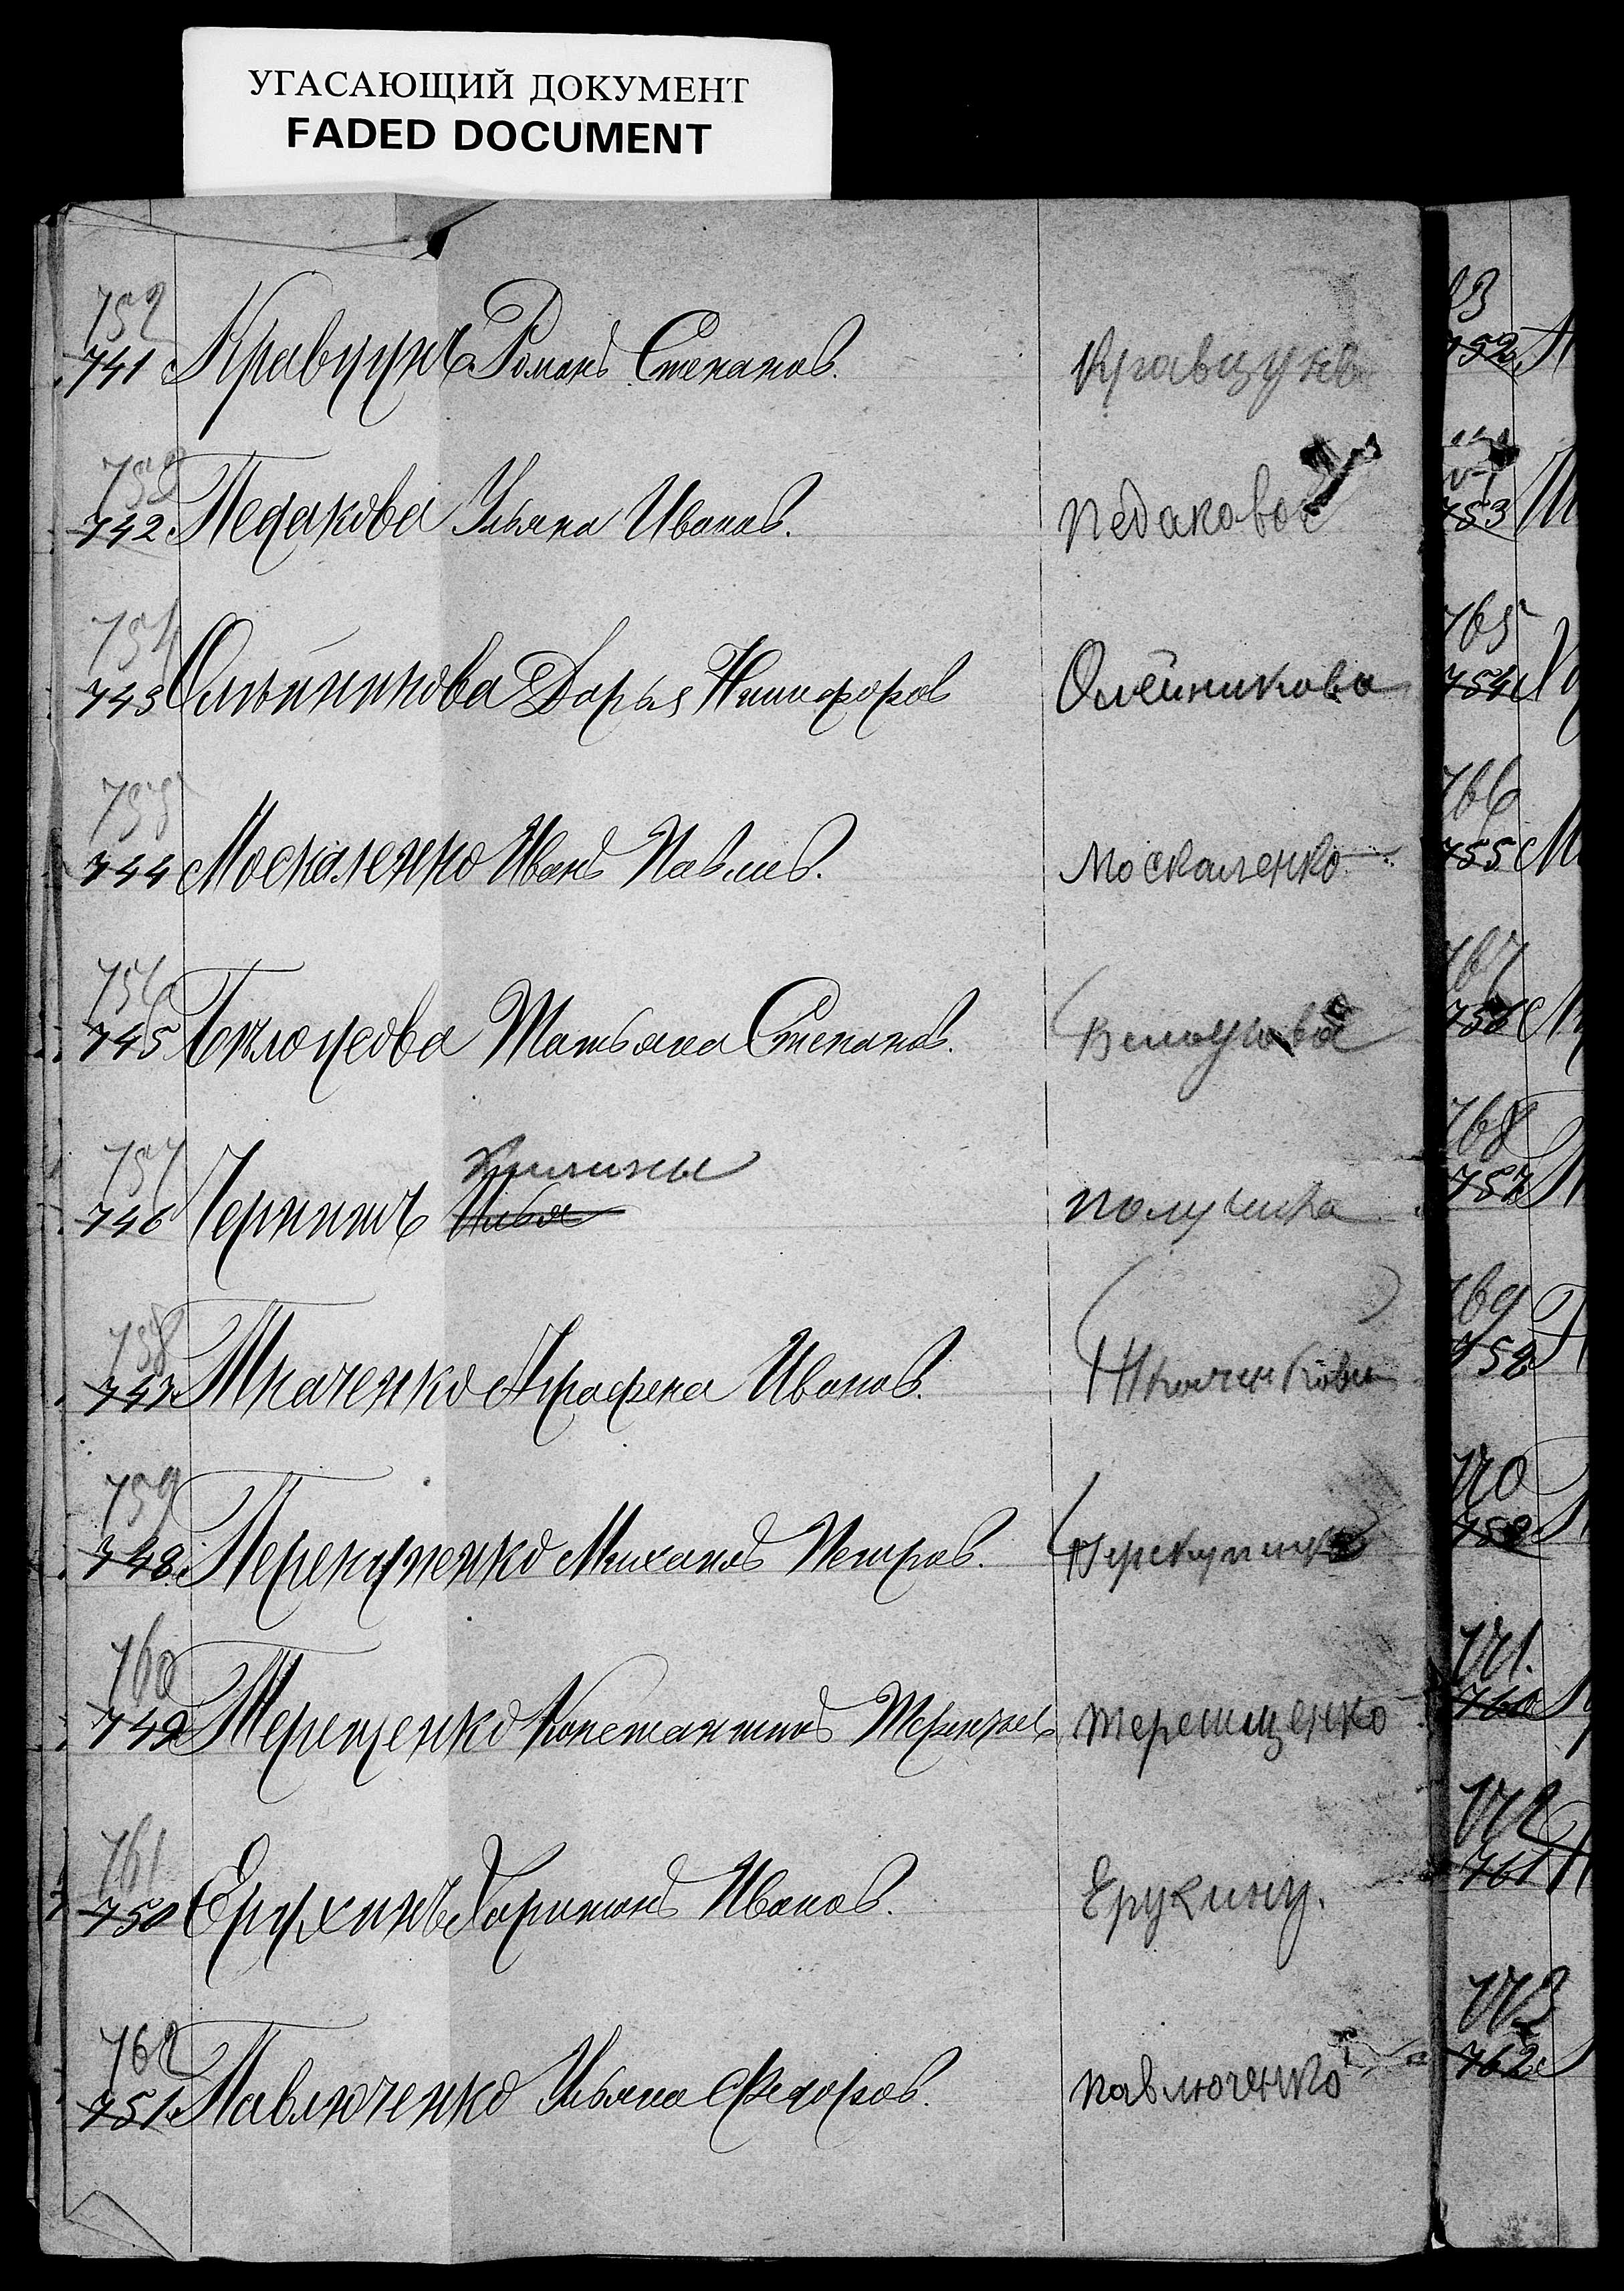 УГАСАЮЩИЙ ДОКУМЕНТ
FADED DOCUMENT
752
741 Кравцунъ Романъ Степанов. Кравцунъ
753
742 Педакова Ульяна Иванов. Педаковой
754
743 Олѣйникова Дарья Никифоров Олейникова
755
744 Москаленко Иванъ Павлов. Москаленко
756
745 Бѣлоусова Татьяна Степанов. Белоусова
757
746 Чернишъ Илья получила
758
747 Ткаченко Аграфена Иванов. Ткаченкова
759
748 Перекупенко Михаилъ Петров. Перекупенко
760
749 Терещенко Константинъ Терещенко
761
750 Ерухинъ Харитонъ Иванов. Ерукину.
762
751 Павлюченко Ульяна Федоров. Павлюченко
752
753
765
754
766
755
767
756
768
757
769
758
770
759
771.
760
772
761
773
762